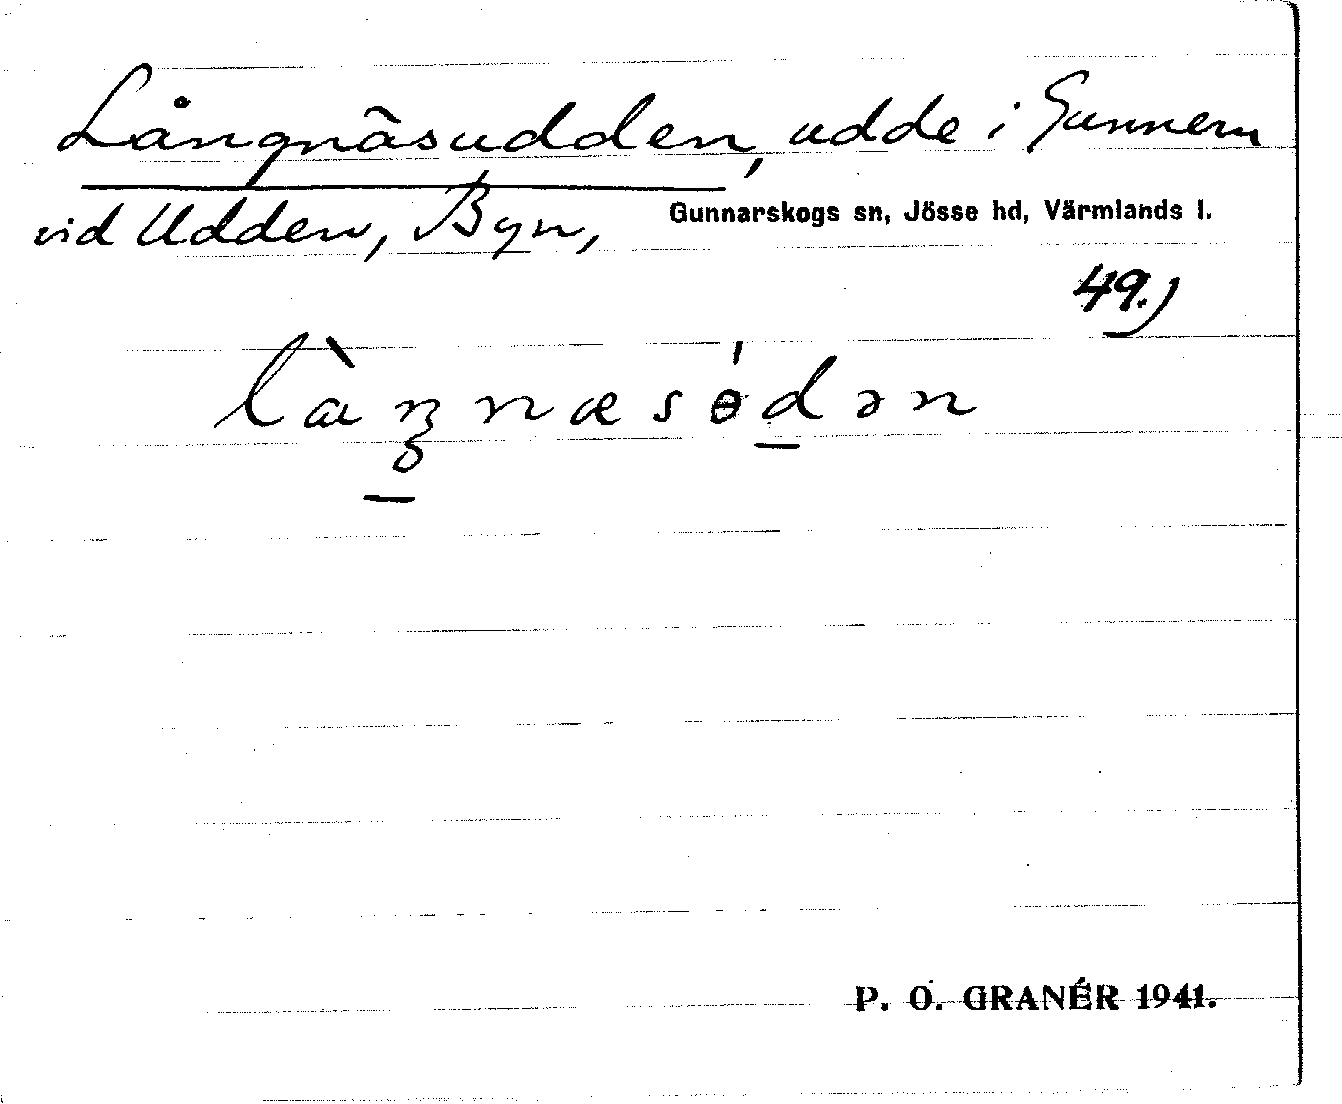 Långnäsudden, udde i Gunnern
vid Udden, Byn, Gunnarskogs sn, Jösse hd, Värmlands l.
49.)
làŋnæsɵ́dən
P. O. GRANÉR 1941.